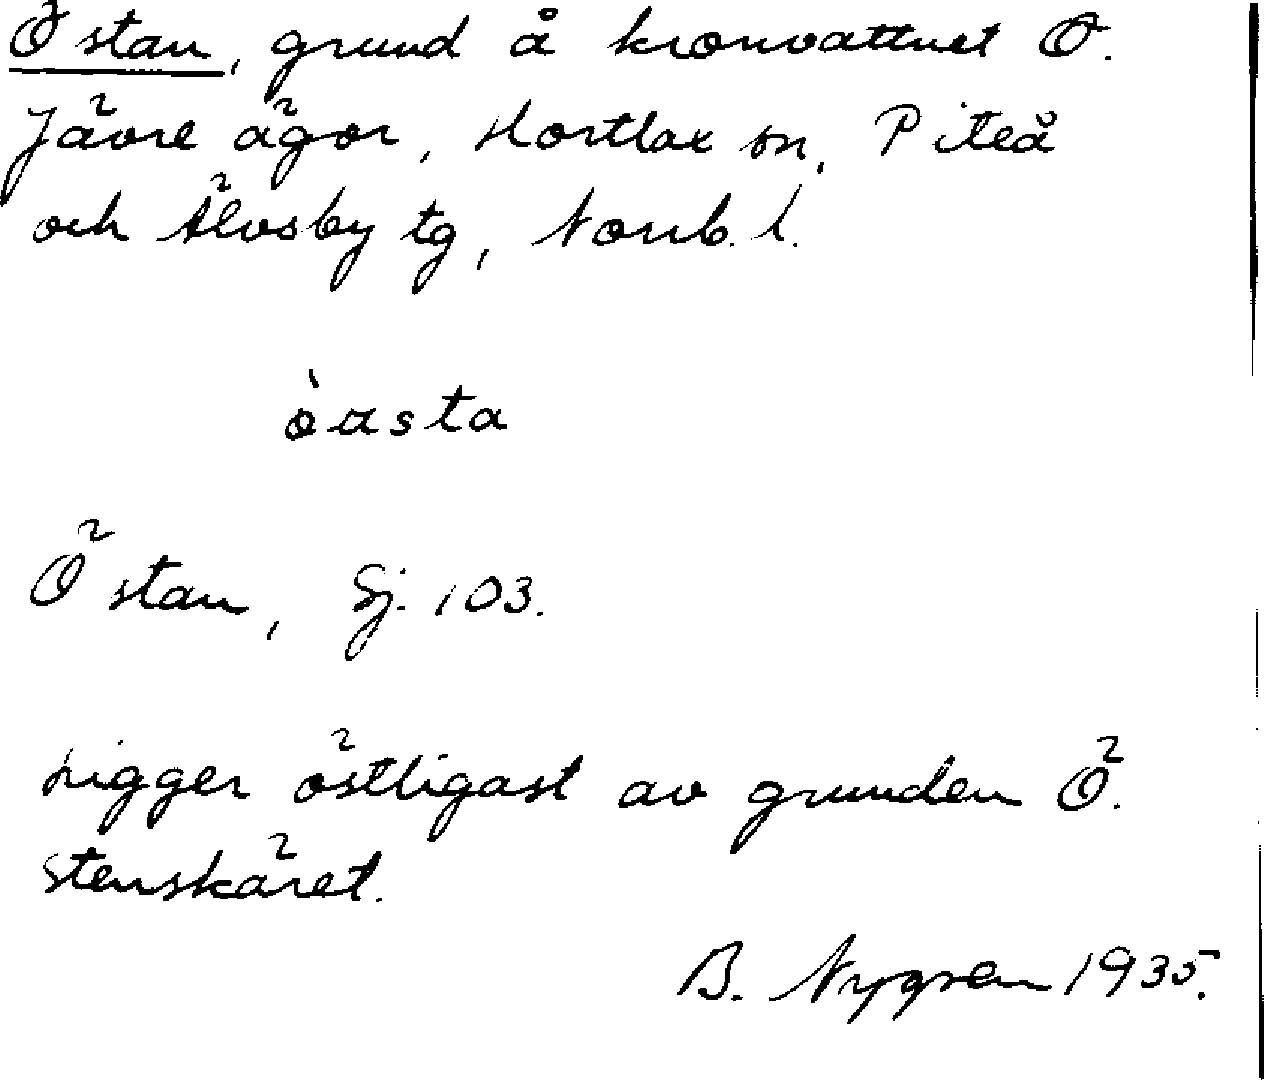 Östan, grund å kronvattnet Ö.
Jävre ägor, Hortlax sn, Piteå
och Älvsby tg, Norrb. l.
ò̀asta
Östan, Sj. 103.
Ligger östligast av grunden Ö.
stenskäret.
B. Nygren 1935.